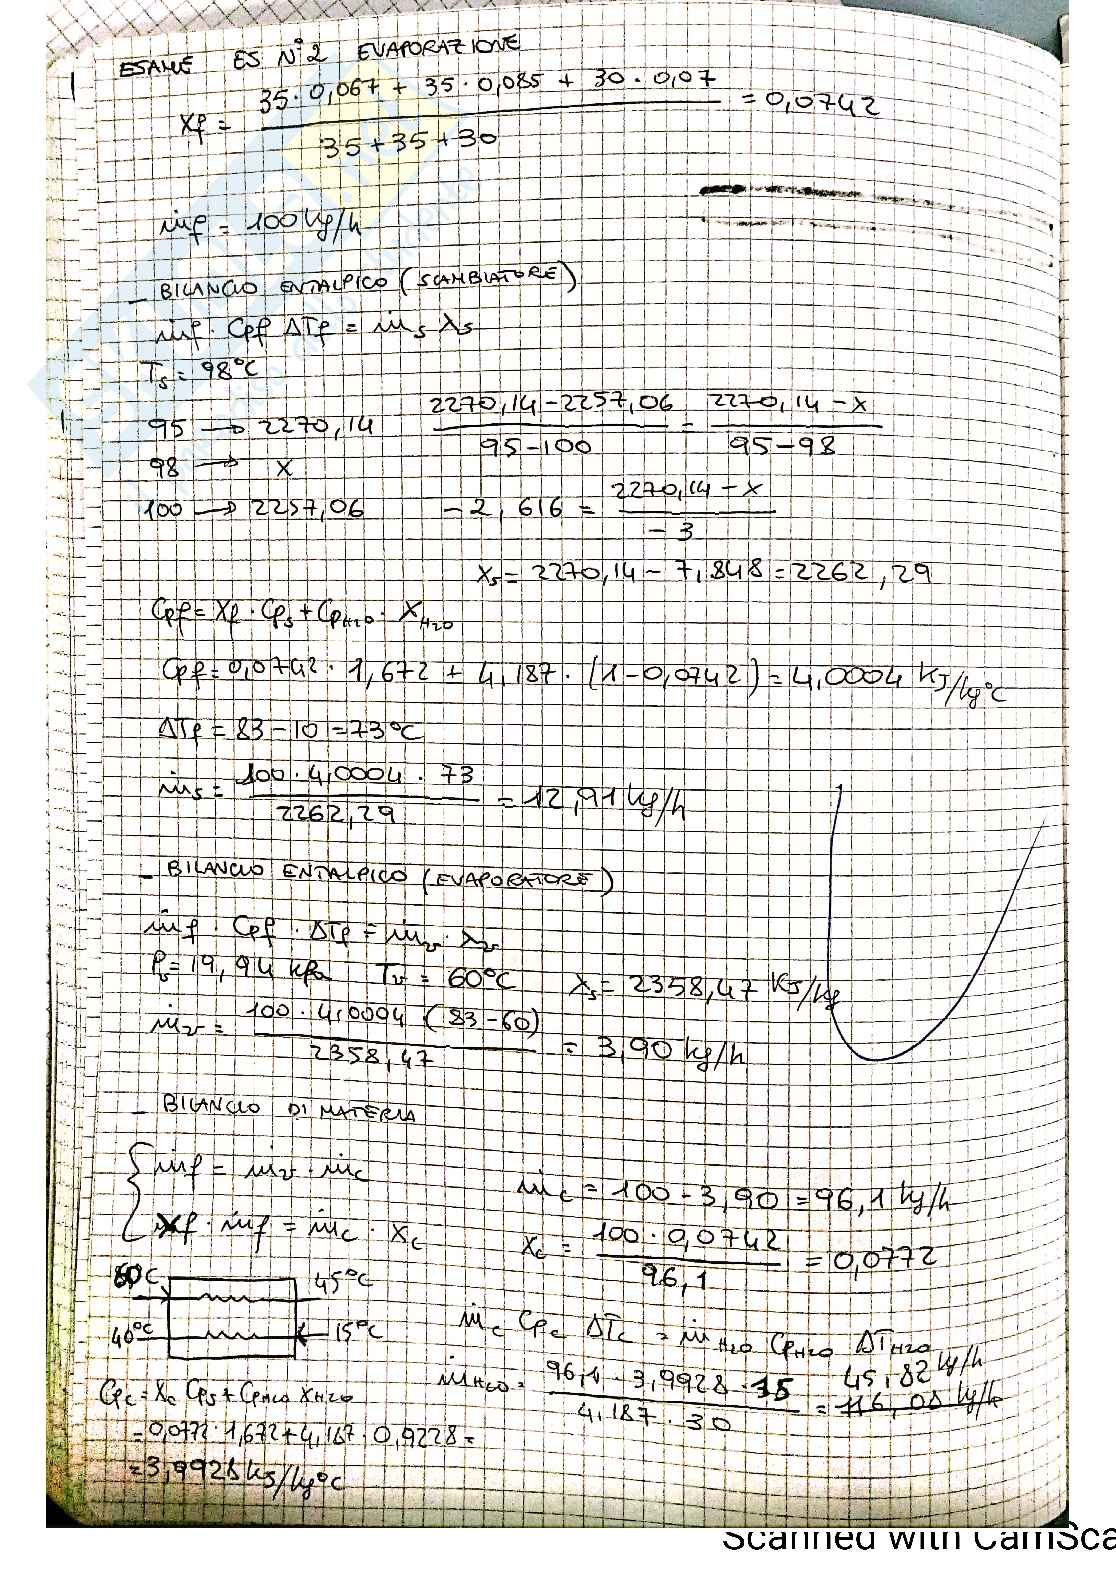 ESAME ES N°2 EVAPORAZIONE
xf = (35·0,067 + 35·0,085 + 30·0,07) / (35+35+30) = 0,0742
ṁf = 100 kg/h
- BILANCIO ENTALPICO (SCAMBIATORE)
ṁf · Cpf ΔTf = ṁs λs
Ts = 98°C
95 → 2270,14
98 → x
100 → 2257,06
(2270,14 - 2257,06) / (95-100) = (2270,14 - x) / (95-98)
-2,616 = (2270,14 - x) / -3
λs = 2270,14 - 7,848 = 2262,29
Cpf = Xf · Cps + CpH2O · XH2O
Cpf = 0,0742 · 1,672 + 4,187 · (1-0,0742) = 4,0004 KJ/kg°C
ΔTf = 83-10 = 73°C
ṁs = (100 · 4,0004 · 73) / 2262,29 = 12,91 kg/h
- BILANCIO ENTALPICO (EVAPORATORE)
ṁf · Cpf · ΔTf = ṁv · λv
Pv = 19,94 kPa Tv = 60°C λs = 2358,47 KJ/kg
ṁv = (100 · 4,0004 (83-60)) / 2358,47 = 3,90 kg/h
- BILANCIO DI MATERIA
{ ṁf = ṁv · ṁc
xf · ṁf = ṁc · xc
ṁc = 100 - 3,90 = 96,1 kg/h
xc = (100 · 0,0742) / 96,1 = 0,0772
60°C 45°C
40°C 15°C
ṁc Cpc ΔTc = ṁH2O CpH2O ΔTH2O
ṁH2O = (96,1 · 3,9928 · 15) / (4,187 · 30) = 45,82 kg/h
116,08 kg/h
Cpc = Xc Cps + CpH2O XH2O
= 0,0772 · 1,672 + 4,187 · 0,9228 =
= 3,9928 KJ/kg°C
Scanned with CamSca